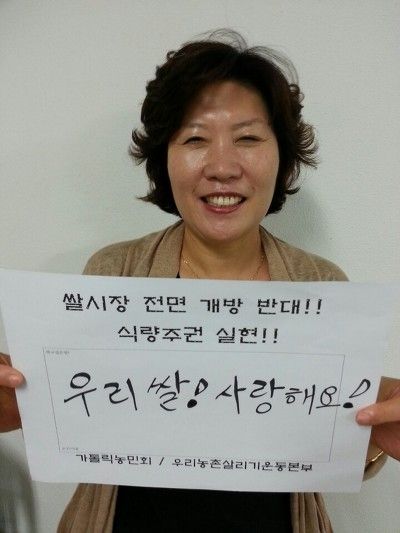 쌀시장 전면 개방 반대!!
식량주권 실현!!
우리 쌀! 사랑해요!
가톨릭농민회 / 우리농촌살리기운동본부